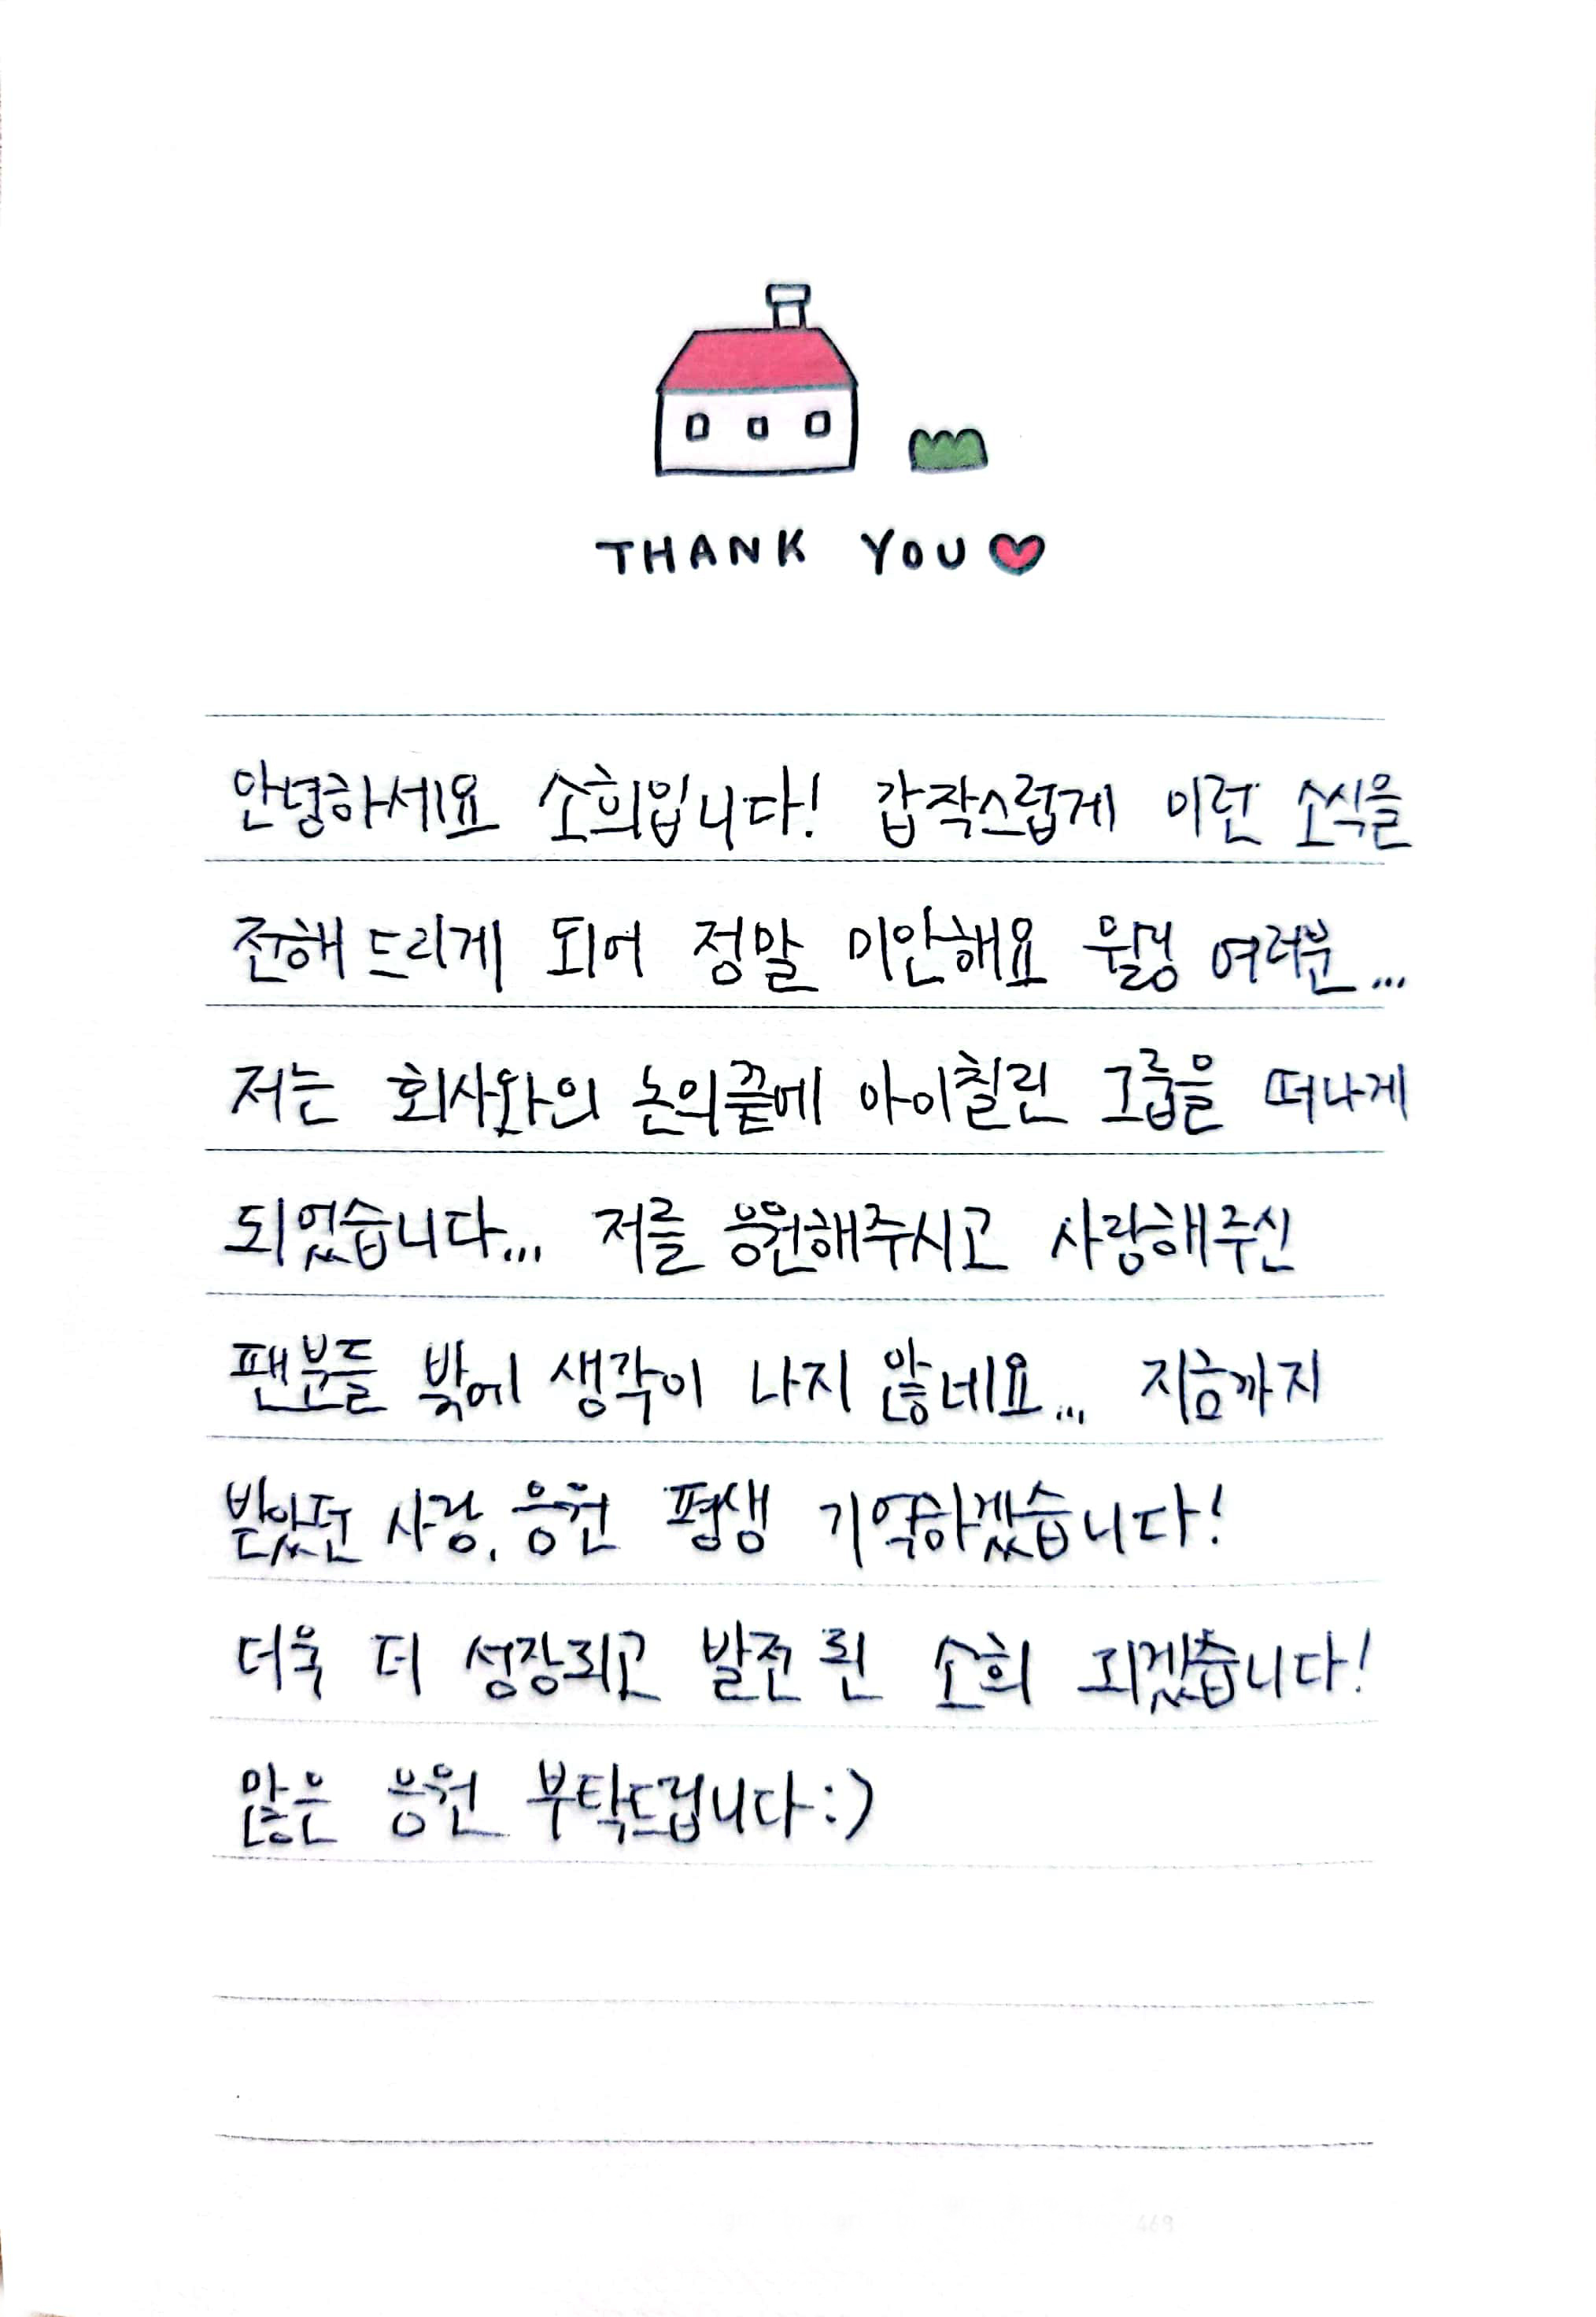 THANK YOU
안녕하세요 소희입니다! 갑작스럽게 이런 소식을
전해 드리게 되어 정말 미안해요 윌링 여러분...
저는 회사와의 논의끝에 아이칠린 그룹을 떠나게
되었습니다... 저를 응원해주시고 사랑해주신
팬분들 밖에 생각이 나지 않네요... 지금까지
받았던 사랑, 응원 평생 기억하겠습니다!
더욱 더 성장되고 발전 된 소희 되겠습니다!
많은 응원 부탁드립니다:)